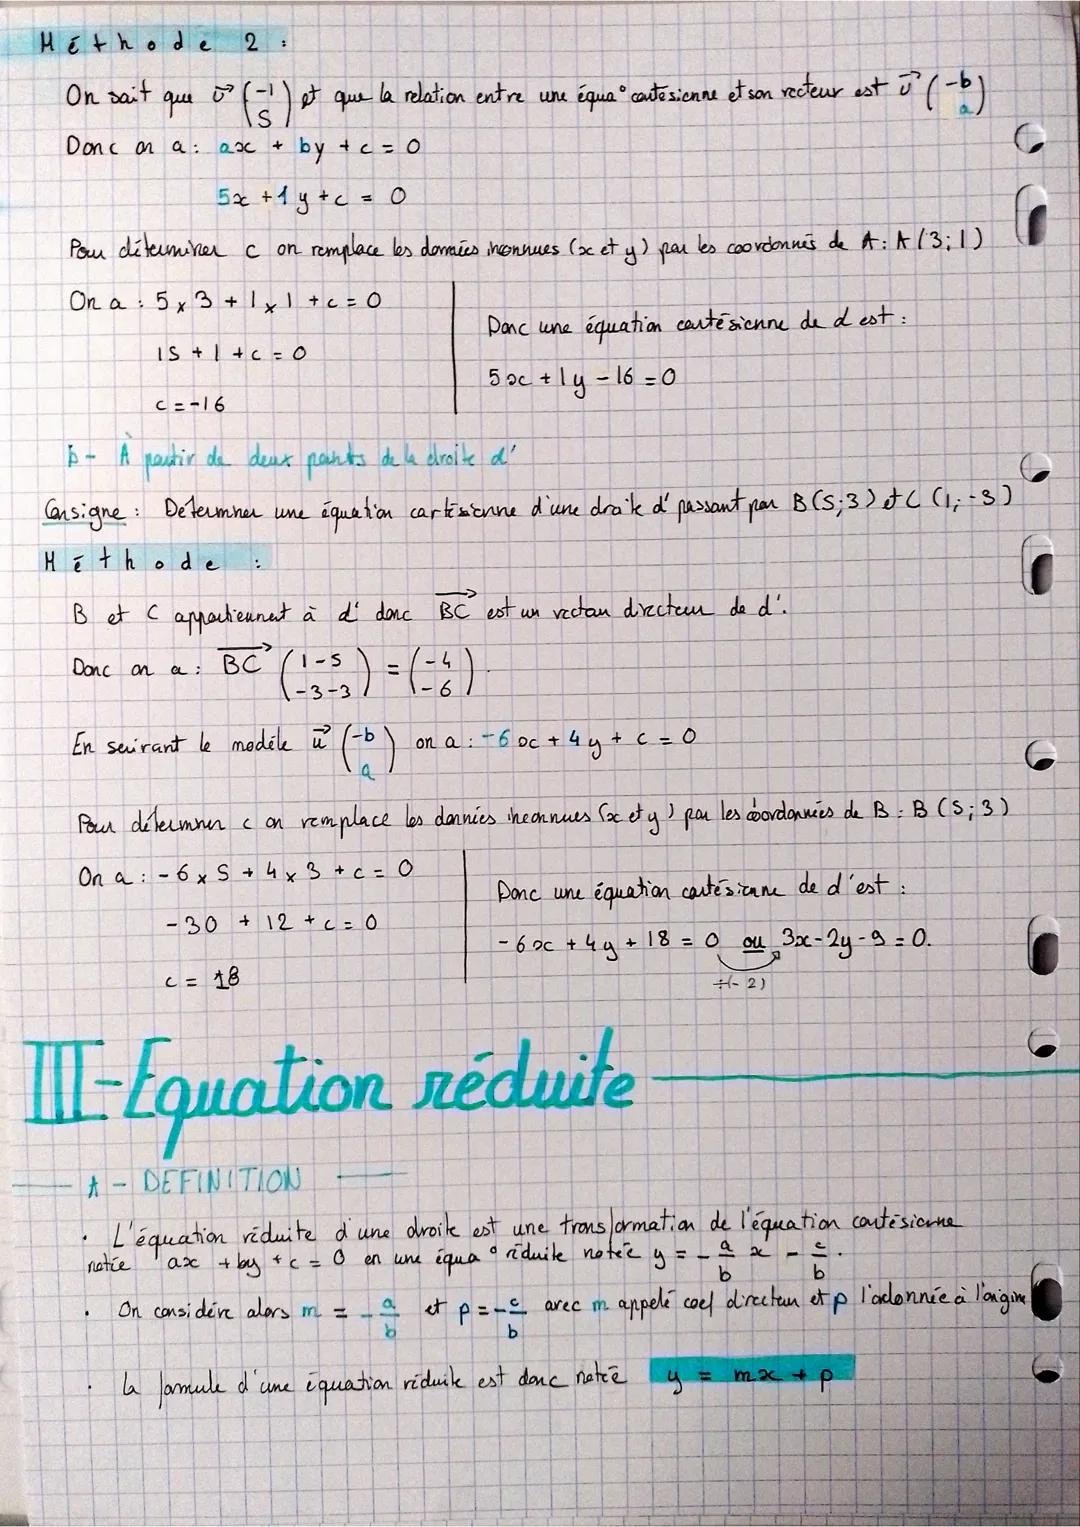 Méthode 2 :
On sait que u⃗ (-1 5) et que la relation entre une équa° cartésienne et son vecteur est u⃗ (-b a)
Donc on a : ax + by + c = 0
5x + 1y + c = 0
Pour déterminer c on remplace les données inconnues (x et y) par les coordonnés de A : A (3; 1)
On a : 5 x 3 + 1 x 1 + c = 0
15 + 1 + c = 0
c = -16
Donc une équation cartésienne de d est :
5x + 1y - 16 = 0
b - À partir de deux points de la droite d'
Consigne : Déterminer une équation cartésienne d'une droite d' passant par B (5; 3) et C (1; -3)
Méthode :
B et C appartiennent à d' donc BC⃗ est un vecteur directeur de d'.
Donc on a : BC⃗ (1-5 -3-3) = (-4 -6).
En suivant le modèle u⃗ (-b a) on a : -6x + 4y + c = 0
Pour déterminer c on remplace les données inconnues (x et y) par les coordonnées de B : B (5; 3)
On a : -6 x 5 + 4 x 3 + c = 0
-30 + 12 + c = 0
c = 18
Donc une équation cartésienne de d' est :
-6x + 4y + 18 = 0 ou 3x - 2y - 9 = 0.
÷(-2)
III - Equation réduite
A - DEFINITION
· L'équation réduite d'une droite est une transformation de l'équation cartésienne
notée ax + by + c = 0 en une équa° réduite notée y = - a/b x - c/b.
· On considère alors m = - a/b et p = - c/b avec m appelé coef directeur et p l'ordonnée à l'origine
· La formule d'une équation réduite est donc notée y = mx + p